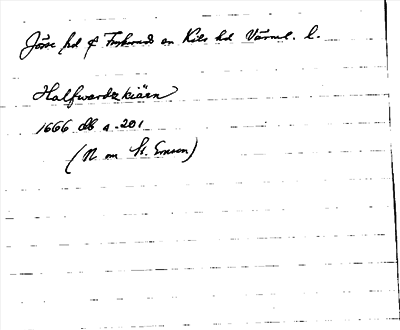 Jösse hd & Forshaga sn Kils hd Värml. l.
Halfwardzkiärn
1666 db a. 201
(N om St. Emsen)